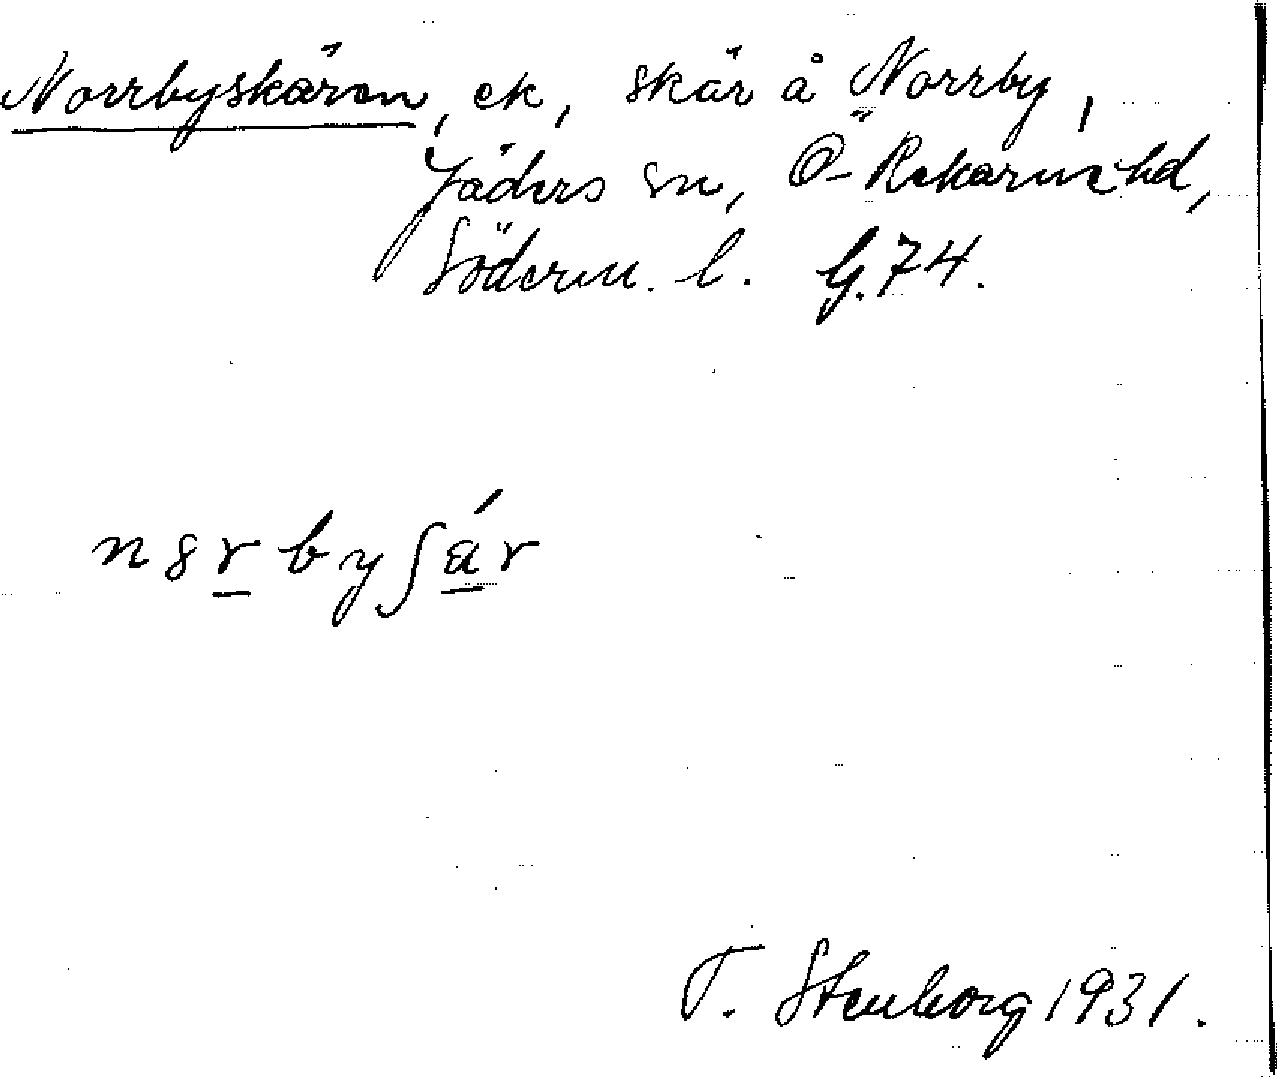 Norrbyskären, ek, skär å Norrby,
Jäders sn, Ö-Rekarne hd,
Söderm. l. G.74.
n8rbyʃär
T. Stenborg 1931.